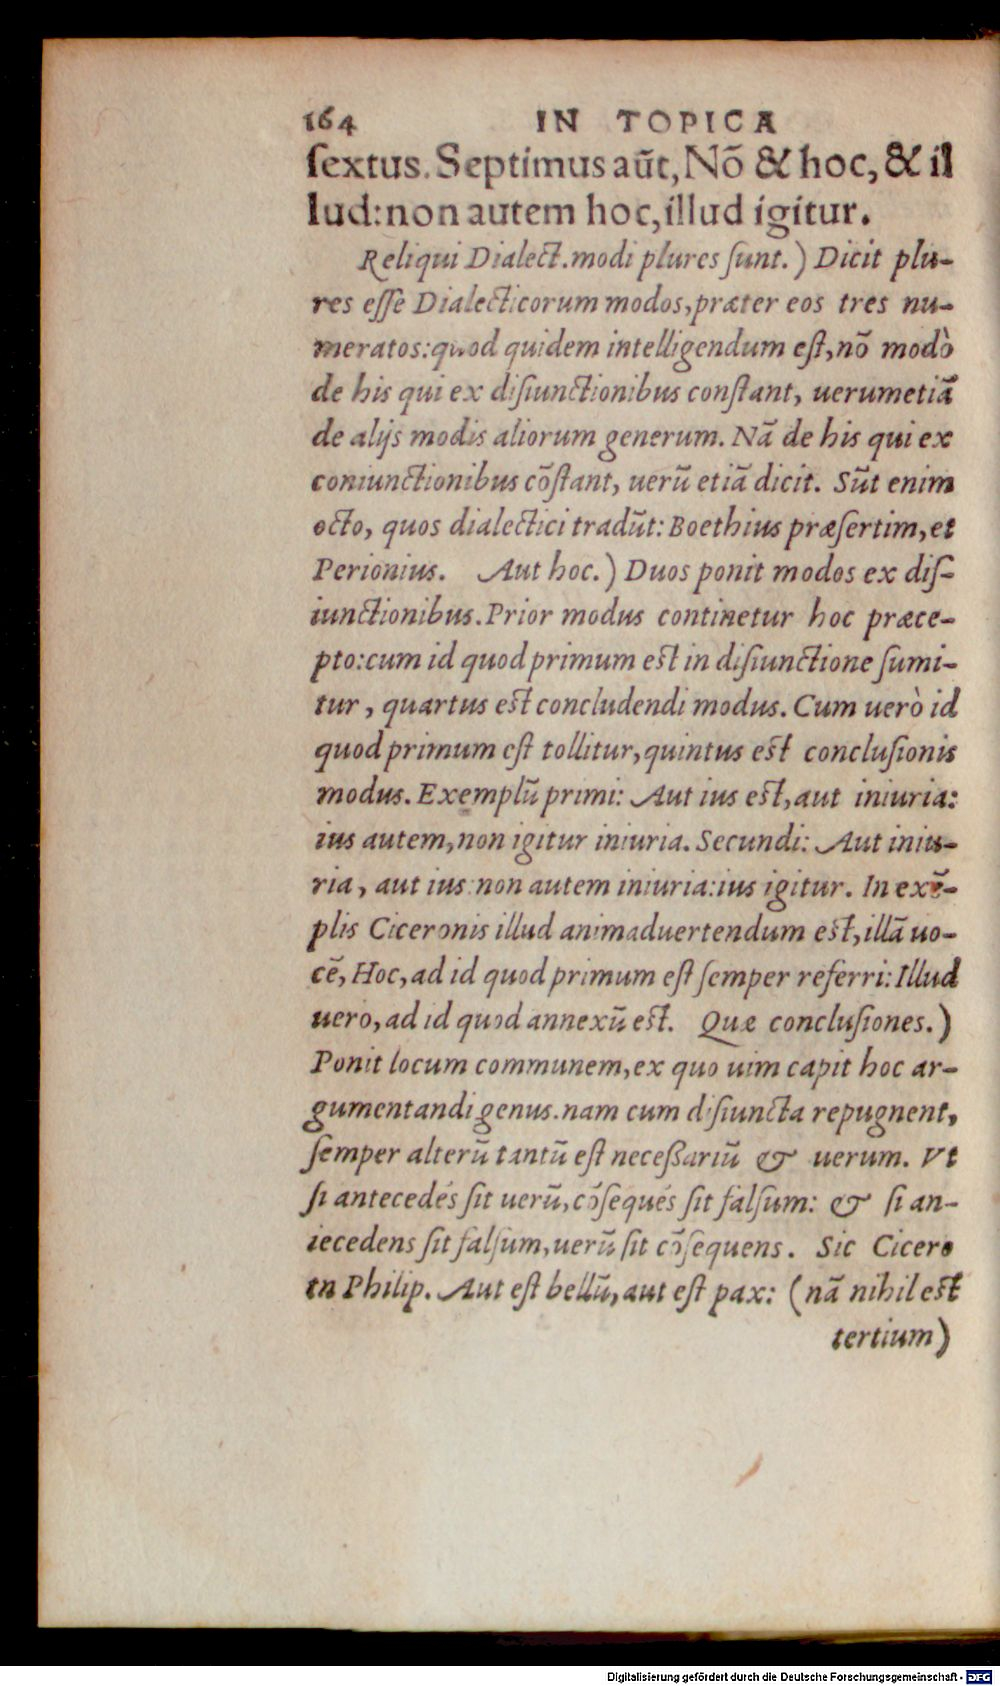 164 IN TOPICA
ſextus. Septimus aũt, Nõ & hoc, & il
lud: non autem hoc, illud igitur.
Reliqui Dialect. modi plures ſunt.) Dicit plu-
res eſſe Dialecticorum modos, præter eos tres nu-
meratos: quod quidem intelligendum eſt, nõ modò
de his qui ex diſiunctionibus conſtant, uerumetiã
de alijs modis aliorum generum. Nã de his qui ex
coniunctionibus cõſtant, uerũ etiã dicit. Sũt enim
octo, quos dialectici tradũt: Boethius præſertim, et
Perionius. Aut hoc.) Duos ponit modos ex diſ-
iunctionibus. Prior modus continetur hoc præce-
pto: cum id quod primum est in diſiunctione ſumi-
tur, quartus est concludendi modus. Cum uerò id
quod primum eſt tollitur, quintus est concluſionis
modus. Exemplũ primi: Aut ius est, aut iniuria:
ius autem, non igitur iniuria. Secundi: Aut iniu-
ria, aut ius: non autem iniuria: ius igitur. In exẽ-
plis Ciceronis illud animaduertendum est, illã uo-
cẽ, Hoc, ad id quod primum eſt ſemper referri: Illud
uero, ad id quod annexũ est. Quæ concluſiones.)
Ponit locum communem, ex quo uim capit hoc ar-
gumentandi genus. nam cum diſiuncta repugnent,
ſemper alterũ tantũ eſt neceßariũ & uerum. Vt
ſi antecedẽs ſit uerũ, cõſequẽs ſit falſum: & ſi an-
iecedens ſit falſum, uerũ ſit cõſequens. Sic Cicero
tn Philip. Aut eſt bellũ, aut eſt pax: (nã nihil est
tertium)
Digitalisierung gefördert durch die Deutsche Forschungsgemeinschaft - DFG